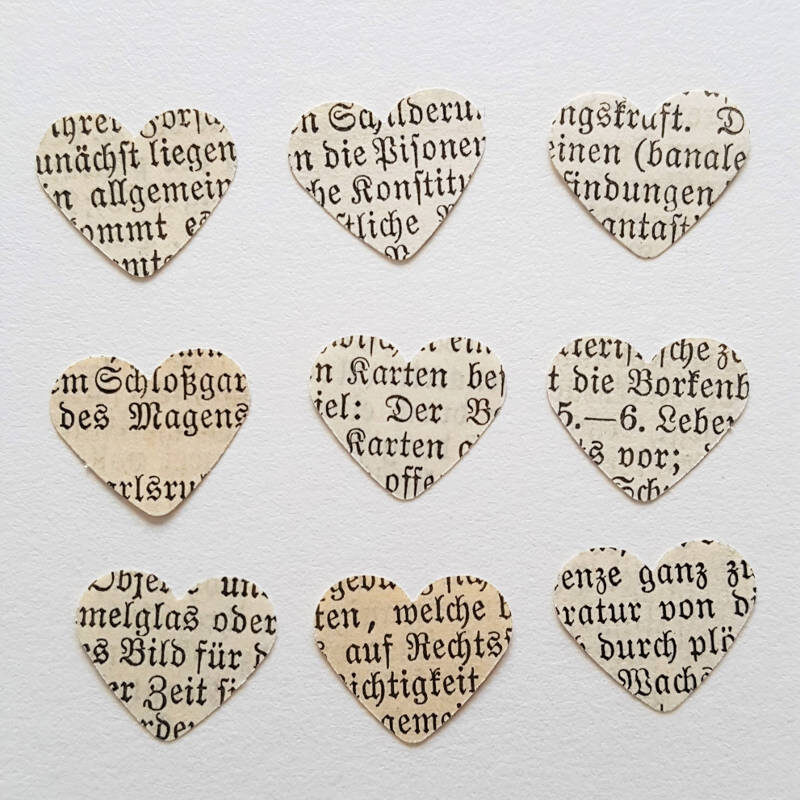 unächst liegen
in allgemein
ommt
n die Pisoner
he Konstitu
tliche
ngskraft. D
einen (banale
findungen
antast
em Schloßgar
des Magens
arlsru
n Karten bes
iel: Der Be
Karten
offe
t die Borkenb
5.—6. Lebe
ts vor;
Sch
melglas oder
es Bild für d
er Zeit
rde
ten, welche
auf Rechts
ichtigkeit
gemei
enze ganz zu
ratur von di
durch plö
Wachs